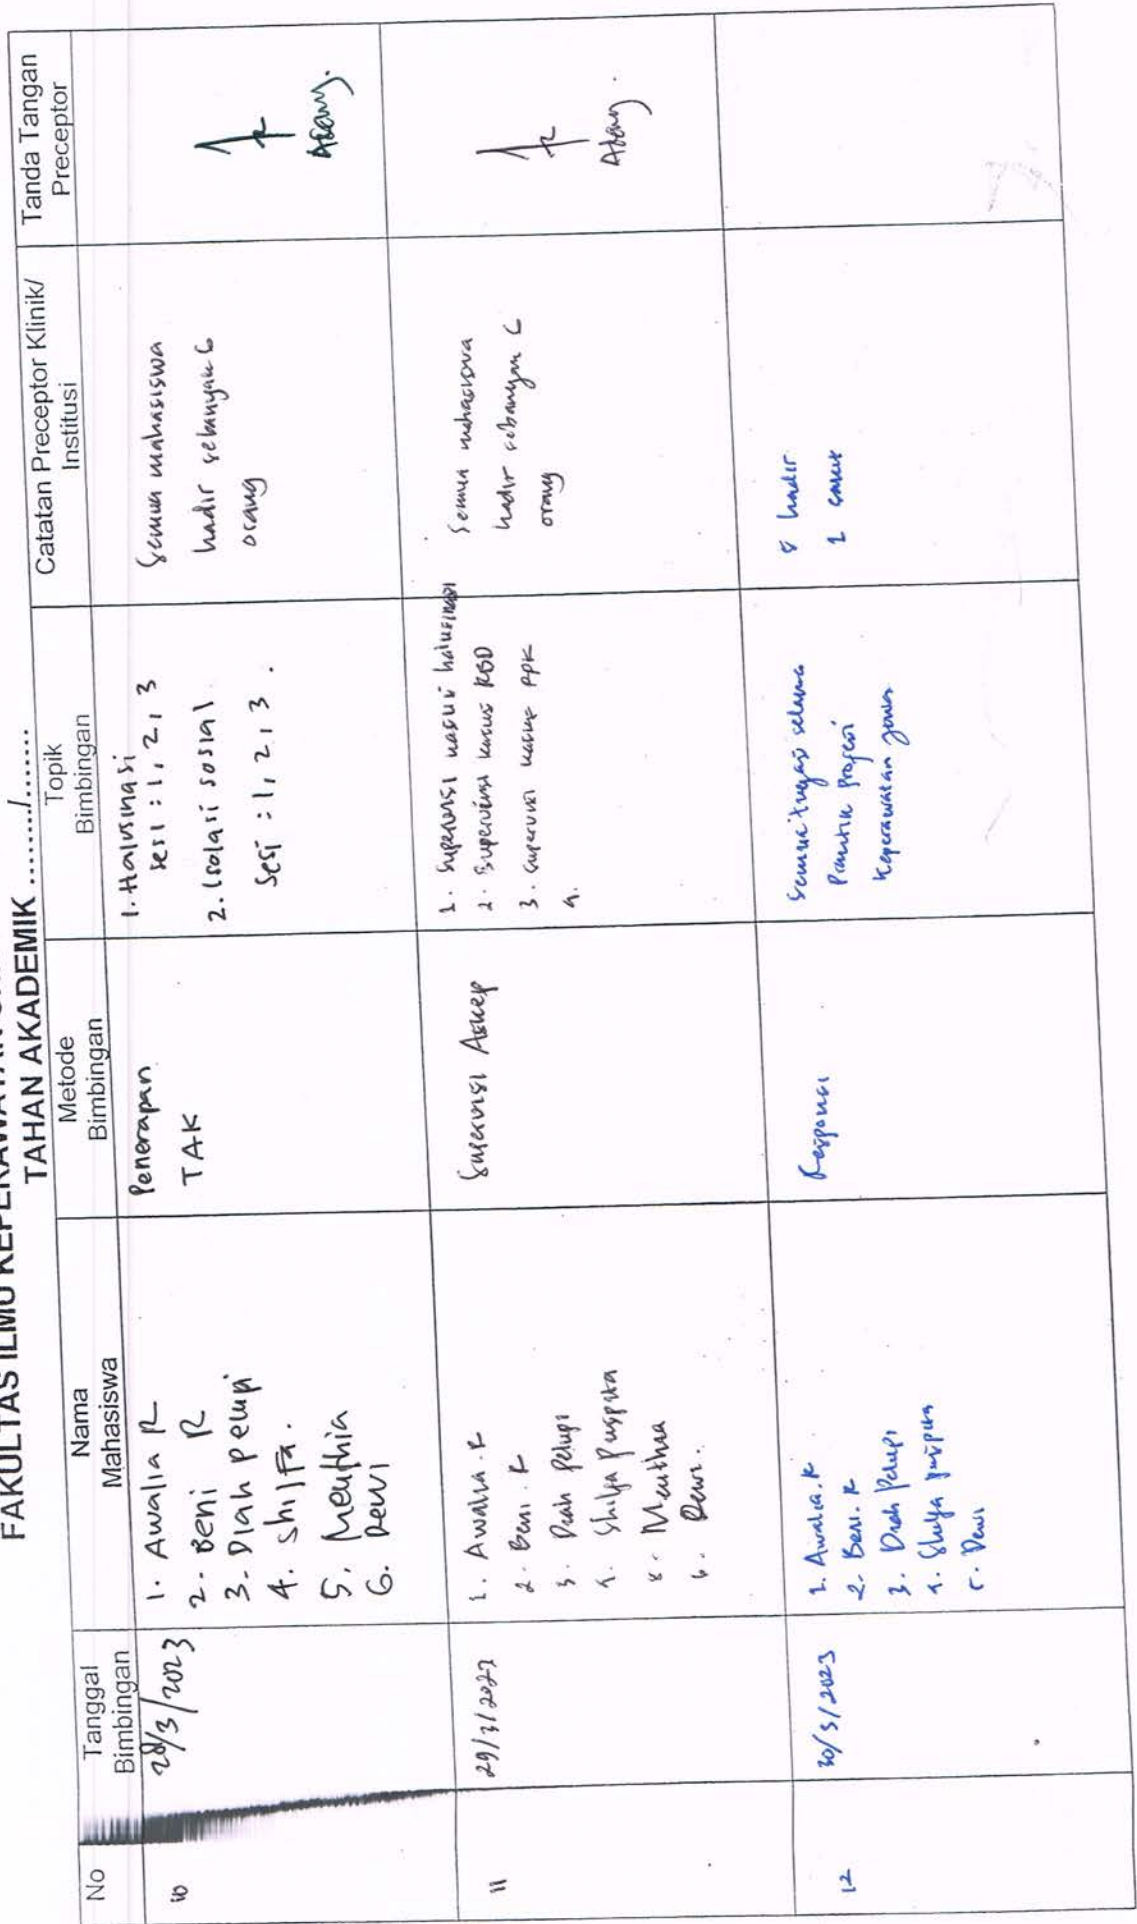 FAKULTAS ILMU KEPERAWATAN
TAHAN AKADEMIK ........./........
No
Tanggal
Bimbingan
Nama
Mahasiswa
Metode
Bimbingan
Topik
Bimbingan
Catatan Preceptor Klinik/
Institusi
Tanda Tangan
Preceptor
10
28/3/2023
1. Awalia R
2. Beni R
3. Diah pelupi
4. Shilfa.
5. Meuthia
6. Dewi
Penerapan
TAK
1. Halusinasi
sesi : 1, 2, 3
2. Isolasi sosial.
Sesi : 1, 2, 3.
Semua mahasiswa
hadir sebanyak 6
orang
11
29/3/2023
1. Awalia. R
2. Beni. R
3. Diah Pelupi
4. Shilfa Puspita
5. Meuthia
6. Dewi.
Supervisi Askep
1. Supervisi kasus halusinasi
2. Supervisi kasus RBD
3. Supervisi kasus PPK
4.
Semua mahasiswa
hadir sebanyak 6
orang
12
30/3/2023
1. Awalia. R
2. Beni. R
3. Diah Pelupi
4. Shilfa puspita
5. Dewi
Responsi
Semua tugas selama
Praktik Profesi
Keperawatan Jiwa
5 hadir